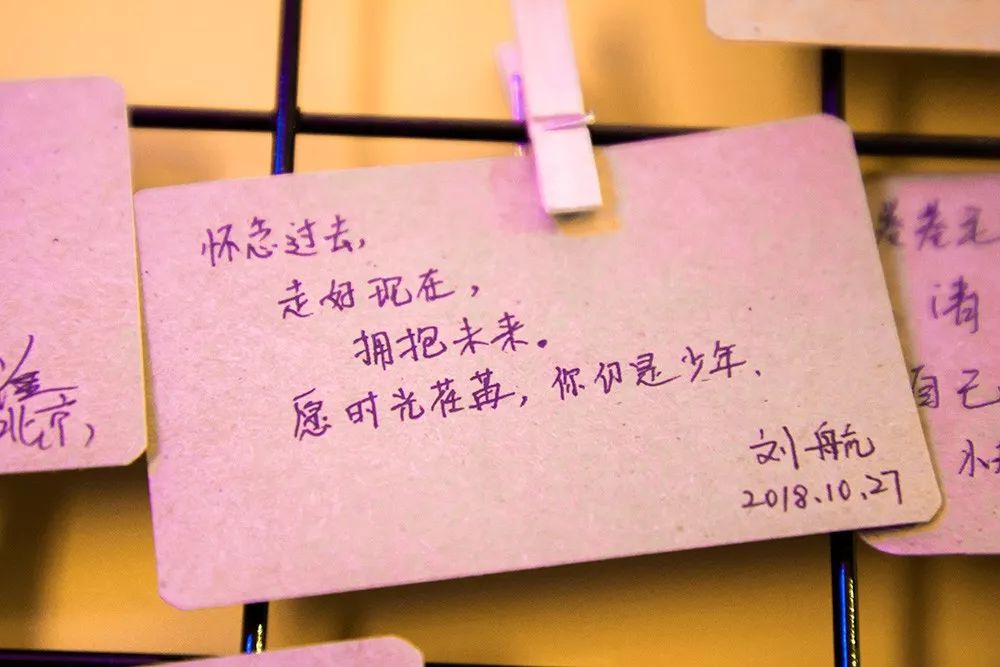 怀念过去,
走好现在,
拥抱未来。
愿时光荏苒,你仍是少年.
刘航
2018.10.27
北京,
清
自己